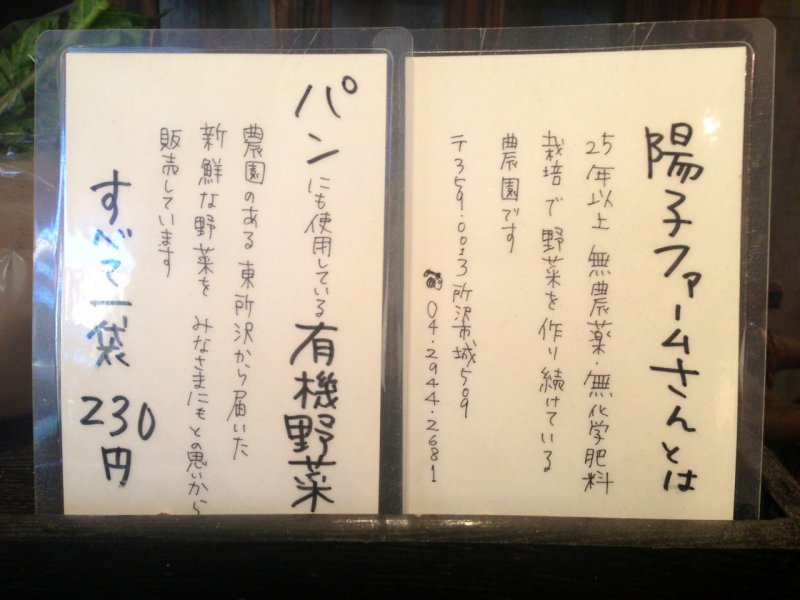 陽子ファームさんとは
25年以上 無農薬・無化学肥料
栽培で野菜を作り続けている
農園です
〒359.0013 所沢市城509
☎ 04.2944.2681
パンにも使用している有機野菜
農園のある東所沢から届いた
新鮮な野菜を みなさまにもとの思いから
販売しています
すべて一袋 230円